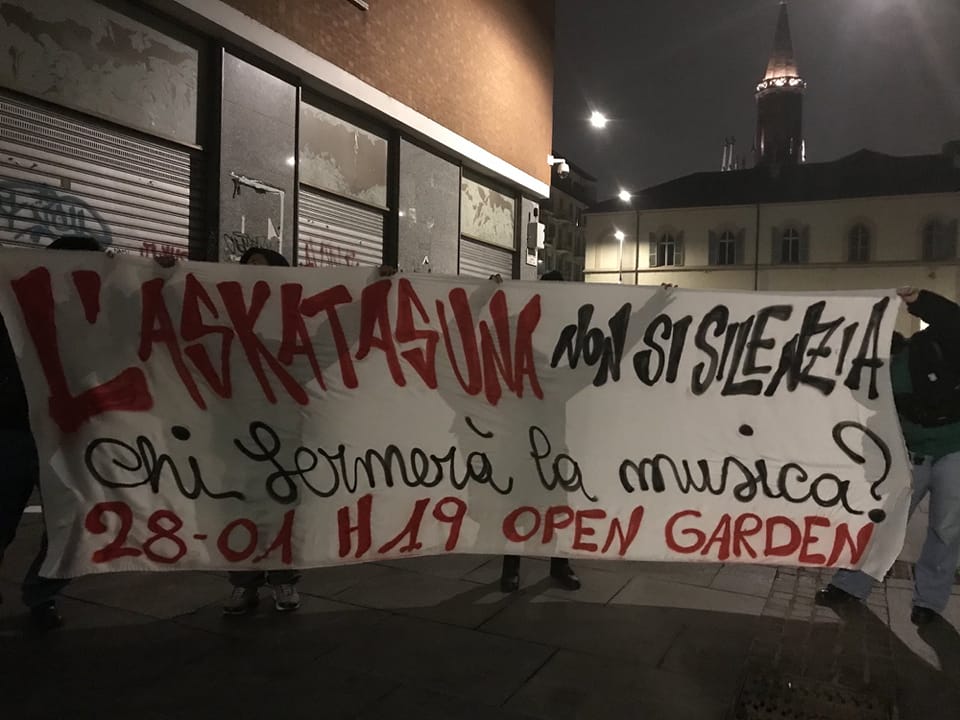 L'ASKATASUNA NON SI SILENZIA
Chi fermerà la musica?
28-01 H19 OPEN GARDEN